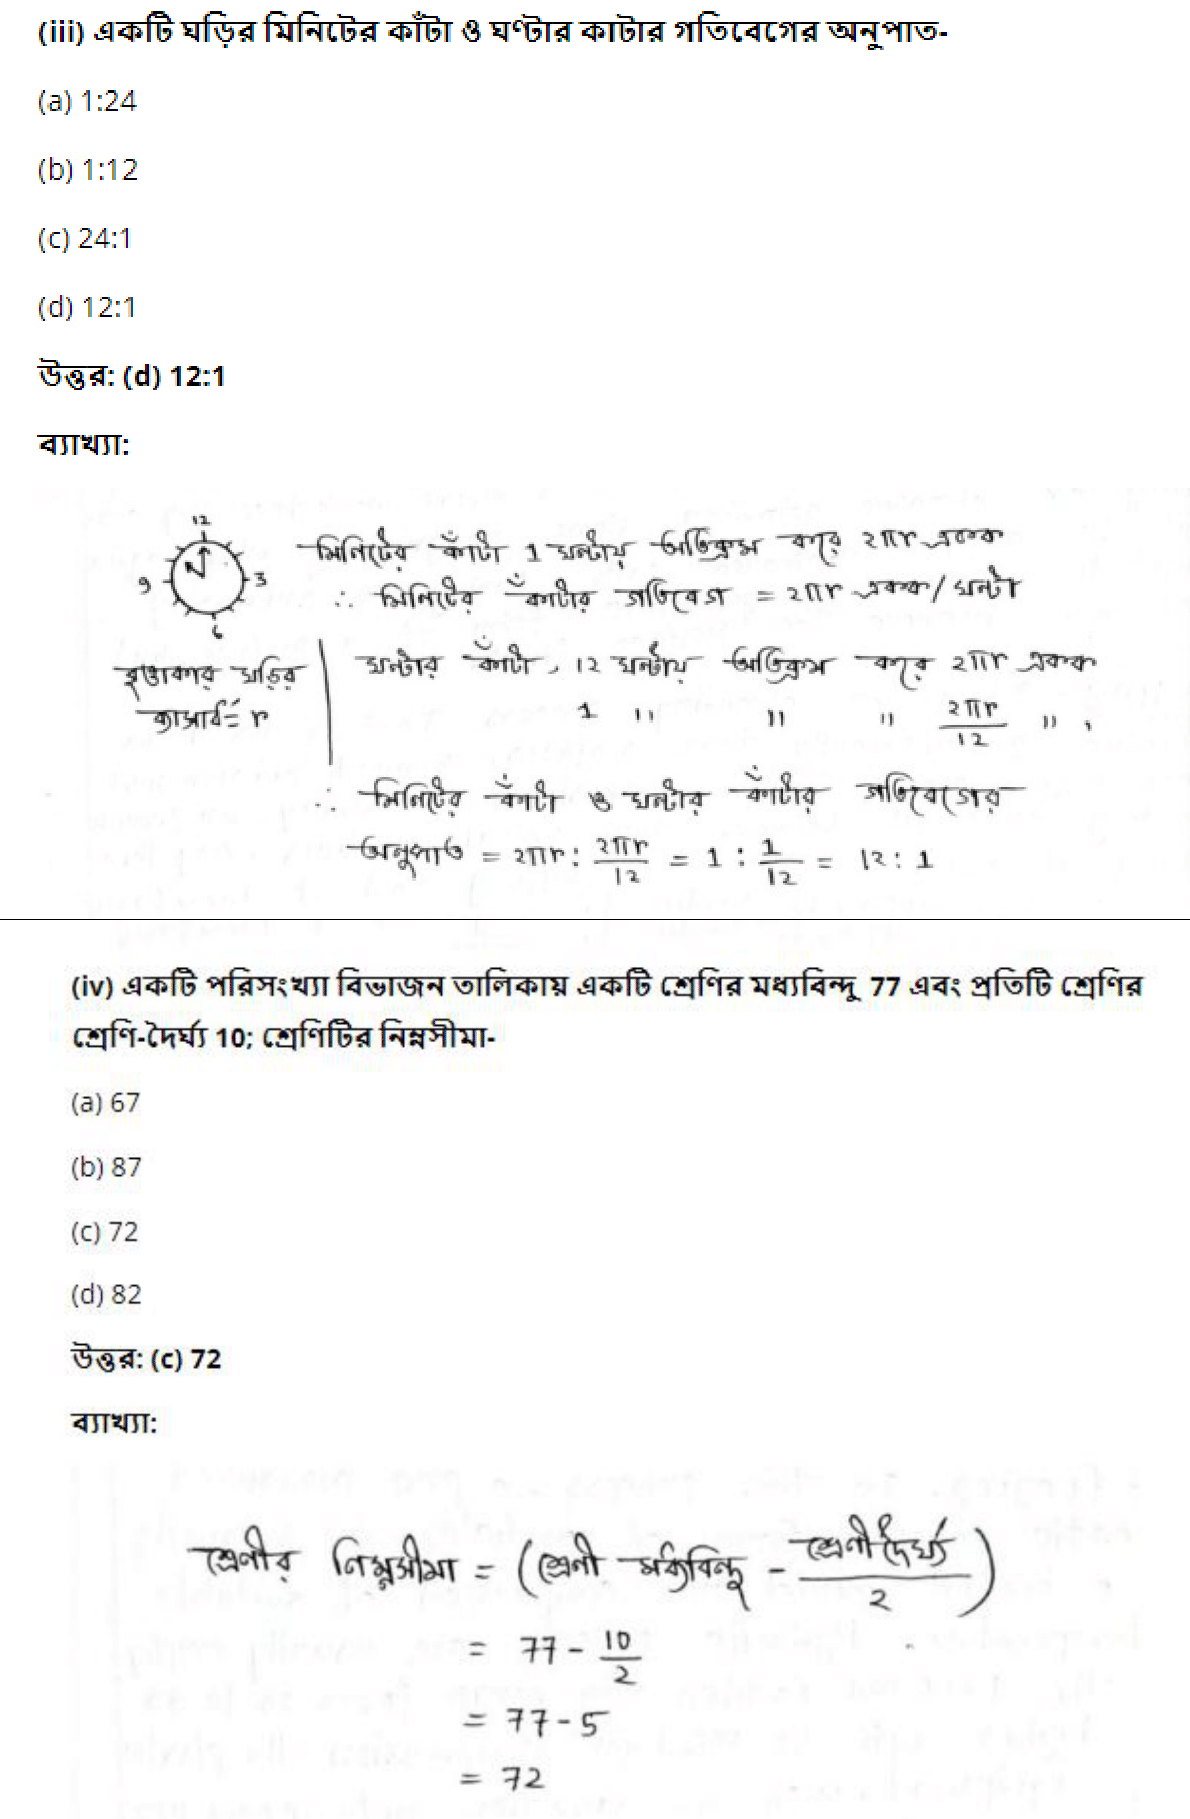 (iii) একটি ঘড়ির মিনিটের কাঁটা ও ঘণ্টার কাটার গতিবেগের অনুপাত-
(a) 1:24
(b) 1:12
(c) 24:1
(d) 12:1
উত্তর: (d) 12:1
ব্যাখ্যা:
12
9
3
6
মিনিটের কাঁটা 1 ঘন্টায় অতিক্রম করে 2πr একক
∴ মিনিটের কাঁটার গতিবেগ = 2πr একক/ঘন্টা
বৃত্তাকার ঘড়ির
ব্যাসার্ধ = r
ঘন্টার কাঁটা, 12 ঘন্টায় অতিক্রম করে 2πr একক
1 '' '' '' 2πr/12 '' ,
∴ মিনিটের কাঁটা ও ঘন্টার কাঁটার গতিবেগের
অনুপাত = 2πr : 2πr/12 = 1 : 1/12 = 12 : 1
(iv) একটি পরিসংখ্যা বিভাজন তালিকায় একটি শ্রেণির মধ্যবিন্দু 77 এবং প্রতিটি শ্রেণির
শ্রেণি-দৈর্ঘ্য 10; শ্রেণিটির নিম্নসীমা-
(a) 67
(b) 87
(c) 72
(d) 82
উত্তর: (c) 72
ব্যাখ্যা:
শ্রেণীর নিম্নসীমা = (শ্রেণী মধ্যবিন্দু - শ্রেণী দৈর্ঘ্য/2)
= 77 - 10/2
= 77 - 5
= 72